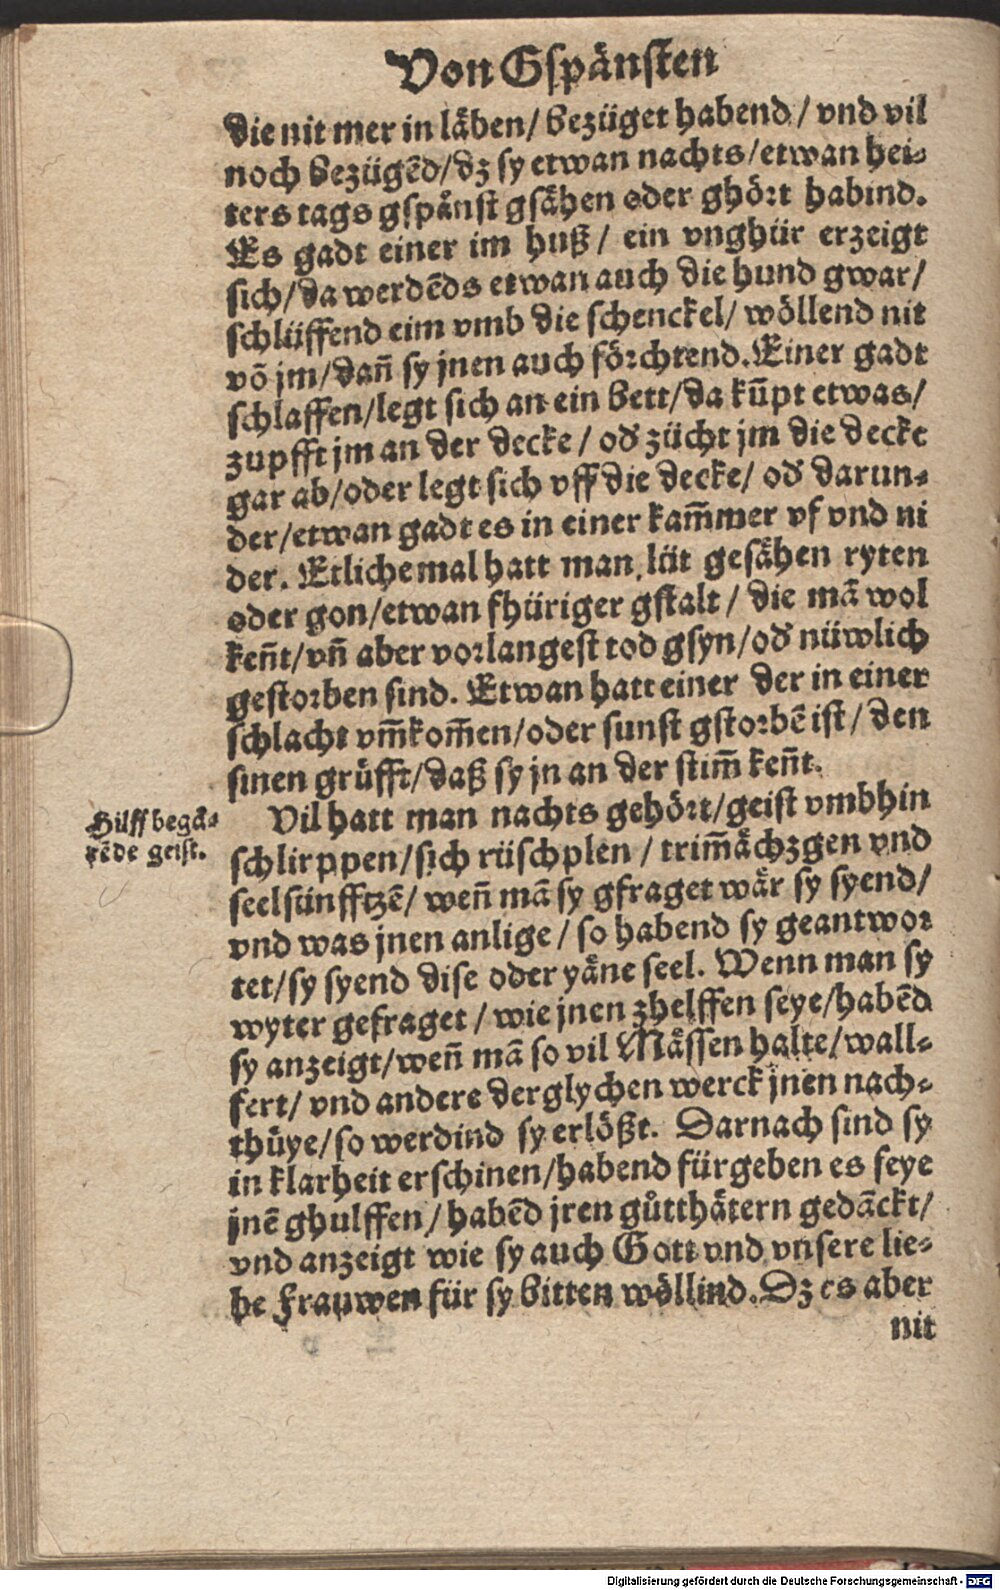 Von Gspänsten
die nit mer in läben/ bezüget habend/ vnd vil
noch bezügẽd/dz sy etwan nachts/etwan hei-
ters tags gspänst gsähen oder ghört habind.
Es gadt einer im huß/ ein vnghür erzeigt
sich/da werdẽds etwan auch die hund gwar/
schlüffend eim vmb die schenckel/ wöllend nit
võ jm/dañ sy jnen auch förchtend. Einer gadt
schlaffen/legt sich an ein bett/da kũpt etwas/
zupfft jm an der decke/ oď zücht jm die decke
gar ab/oder legt sich vff die decke/ oď darun-
der/etwan gadt es in einer kam̃mer vf vnd ni
der. Etlichemal hatt man lüt gesähen ryten
oder gon/etwan fhüriger gstalt/ die mã wol
keñt/vñ aber vorlangest tod gsyn/oď nüwlich
gestorben sind. Etwan hatt einer der in einer
schlacht vm̃kom̃en/oder sunst gstorbẽ ist/ den
sinen grüfft/daß sy jn an der stim̃ keñt.
Vil hatt man nachts gehört/geist vmbhin
Hilff begä-
rẽde geist.
schlirppen/sich rüschplen/ trim̃ächzgen vnd
seelsünfftzẽ/ weñ mã sy gfraget wär sy syend/
vnd was jnen anlige/ so habend sy geantwor
tet/sy syend dise oder yäne seel. Wenn man sy
wyter gefraget/ wie jnen zhelffen seye/habẽd
sy anzeigt/weñ mã so vil Mässen halte/wall-
fert/ vnd andere derglychen werck jnen nach-
thüye/so werdind sy erlößt. Darnach sind sy
in klarheit erschinen/habend fürgeben es seye
jnẽ ghulffen/ habẽd jren gůtthätern gedãckt/
vnd anzeigt wie sy auch Gott vnd vnsere lie-
be Frauwen für sy bitten wöllind. Dz es aber
nit
Digitalisierung gefördert durch die Deutsche Forschungsgemeinschaft - DFG